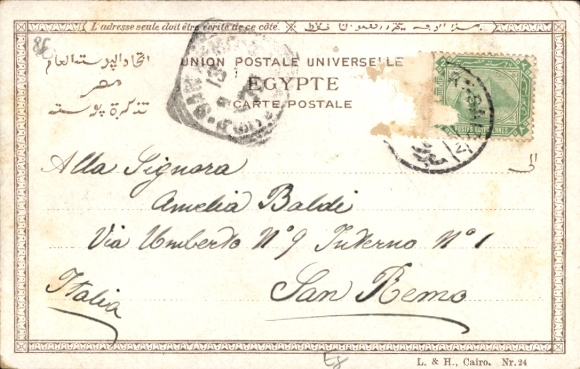 86
L'adresse seule doit être écrite de ce côté.
UNION POSTALE UNIVERSELLE
EGYPTE
CARTE POSTALE
اتحاد البوسته العام
مصر
تذكرة بوسته
POSTES EGYPTIENNES
Alla Signora
Amelia Baldi
Via Umberto Nº 9 Interno Nº 1
Italia
San Remo
L. & H., Cairo. Nr. 24